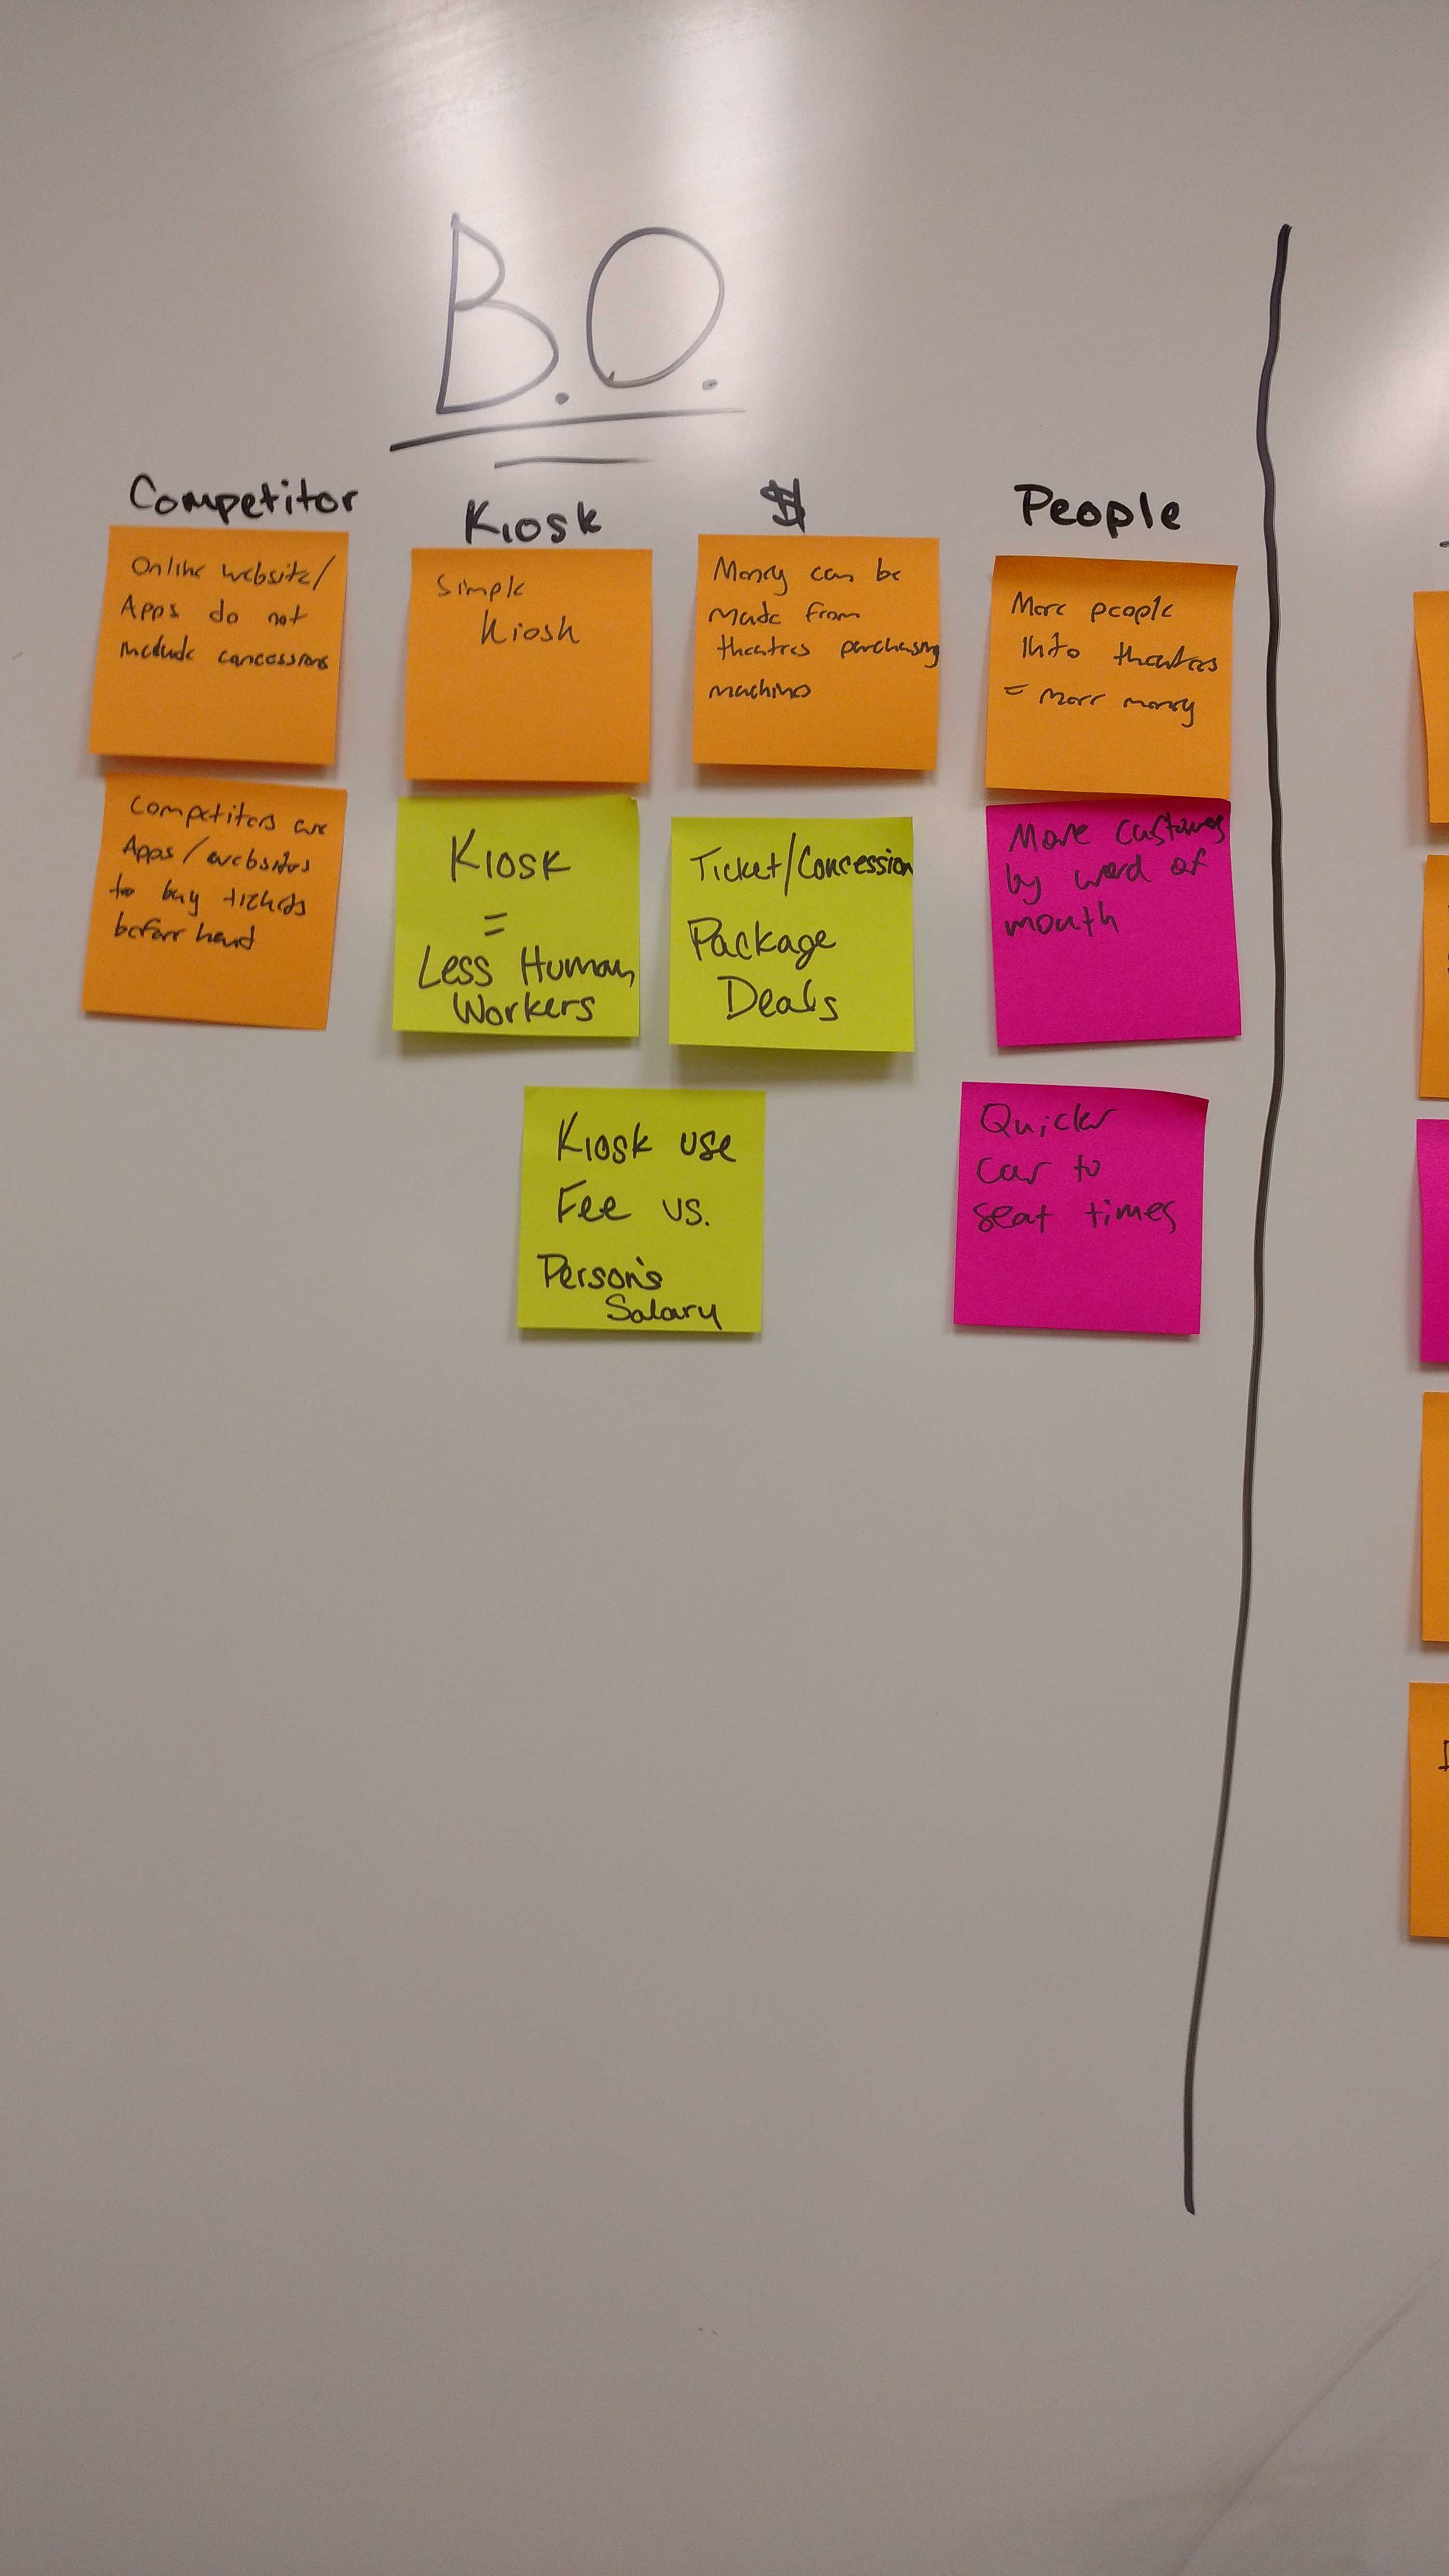 B.O.
Competitor
Online website/
Apps do not
include concessions
Competitors are
Apps/websites
to buy tickets
before hand
Kiosk
Simple
Kiosk
Kiosk
=
Less Human
Workers
$
Money can be
made from
theatres purchasing
machines
Ticket/Concession
Package
Deals
Kiosk use
Fee vs.
Person's
Salary
People
More people
into theatres
= more money
More customers
by word of
mouth
Quicker
car to
seat times